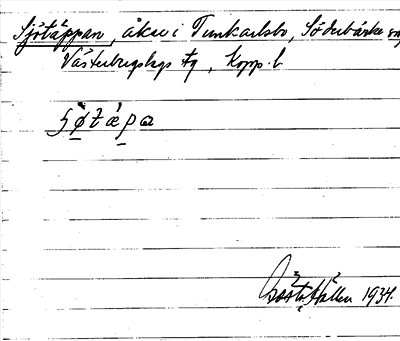 Sjötäppan, åker i Tunkarlsbo, Söderbärke sn,
Västerbergslags tg, Kopp. l.
ʂø̀tæ̀pa
Gösta Hallén 1934.